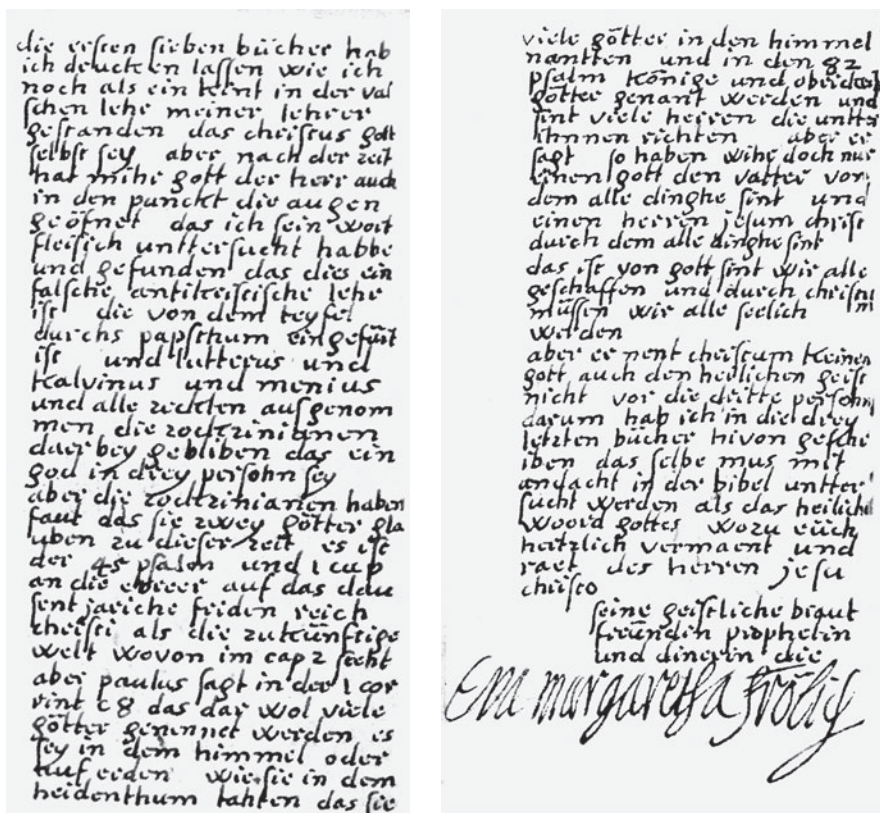 die ersten sieben bücher hab
ich drucken lassen wie ich
noch als ein kint in der val
schen lehe meiner lehrer
gestanden das christus gott
selbst sey aber nach der zeit
hat mihr gott der herr auch
in den punckt die augen
geöfnet das ich sein wort
fleisich unttersucht habbe
und gefunden das dies ein
falsche antikristische lehe
ist die von dem teyfel
durchs papsthum eingefürt
ist und lutterus und
kalvinus und menius
und alle seckten ausgenom
men die zodtzinianen
daer bey gebliben das ein
god in drey persohn sey
aber die zodtzinianen haben
faut das sie zwey götter gla
uben zu dieser zeit es ist
der 45 psalm und 1 cap
an die ebreer auf das dau
sent jariche friden reich
christi als die zukünftige
welt wovon im cap 2 steht
aber paulus sagt in der 1 cor
rint c 8 das dar wol viele
götter genennet werden es
sey in dem himmel oder
auf erden wie sie in dem
heidenthum tahten das sie
viele götter in den himmel
nantten und in den 82
psalm könige und obrideit
götter genant werden und
sint viele herren die untter
ihnnen richten aber er
sagt so haben wihr doch nur
einen gott den vatter von
dem alle dinghe sint und
einen herren jesum christ
durch dem alle dinghe sint
das ist von gott sint wir alle
geschaffen und durch christum
müssen wir alle seelich
werden
aber er nent christum keinen
gott auch den heilichen geist
nicht vor die dritte persohn
darum hab ich in die drey
letzten bücher hivon geschr
iben das selbe mus mit
andacht in der bibel untter
sucht werden als das heiliche
woord gottes wozu eüch
hertzlich vermaent und
raet des herren jesu
christo
seine geistliche braut
freündin prophetin
und dinerin die
Eva margaretha Frölich